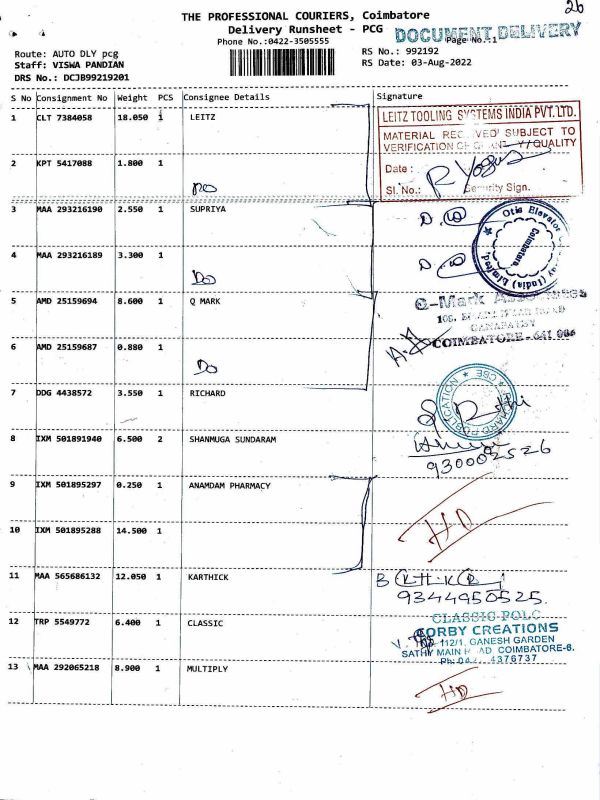 26
THE PROFESSIONAL COURIERS, Coimbatore
Delivery Runsheet - PCG
DOCUMENT DELIVERY
Phone No.:0422-3505555
Page No.:1
Route: AUTO DLY pcg
RS No.: 992192
Staff: VISWA PANDIAN
RS Date: 03-Aug-2022
DRS No.: DCJB99219201
S No Consignment No Weight PCS Consignee Details Signature
1 CLT 7384058 18.050 1 LEITZ
LEITZ TOOLING SYSTEMS INDIA PVT. LTD.
MATERIAL RECEIVED SUBJECT TO
VERIFICATION OF QUANTITY/QUALITY
Date :
Sl. No.: Security Sign.
2 KPT 5417088 1.800 1
DO
3 MAA 293216190 2.550 1 SUPRIYA
Otis Elevator (India) Limited
Coimbatore
4 MAA 293216189 3.300 1
Do
5 AMD 25159694 8.600 1 Q MARK
COIMBATORE - 641 006
6 AMD 25159687 0.880 1
Do
7 DDG 4438572 3.550 1 RICHARD
PUBLICATION * CBE
8 IXM 501891940 6.500 2 SHANMUGA SUNDARAM
930002526
9 IXM 501895297 0.250 1 ANAMDAM PHARMACY
HD
10 IXM 501895288 14.500 1
11 MAA 565686132 12.050 1 KARTHICK
9344950525
12 TRP 5549772 6.400 1 CLASSIC
CLASSIC POLO
CORBY CREATIONS
112/1, GANESH GARDEN
SATHY MAIN ROAD COIMBATORE-6.
4376737
13 MAA 292065218 8.900 1 MULTIPLY
HD